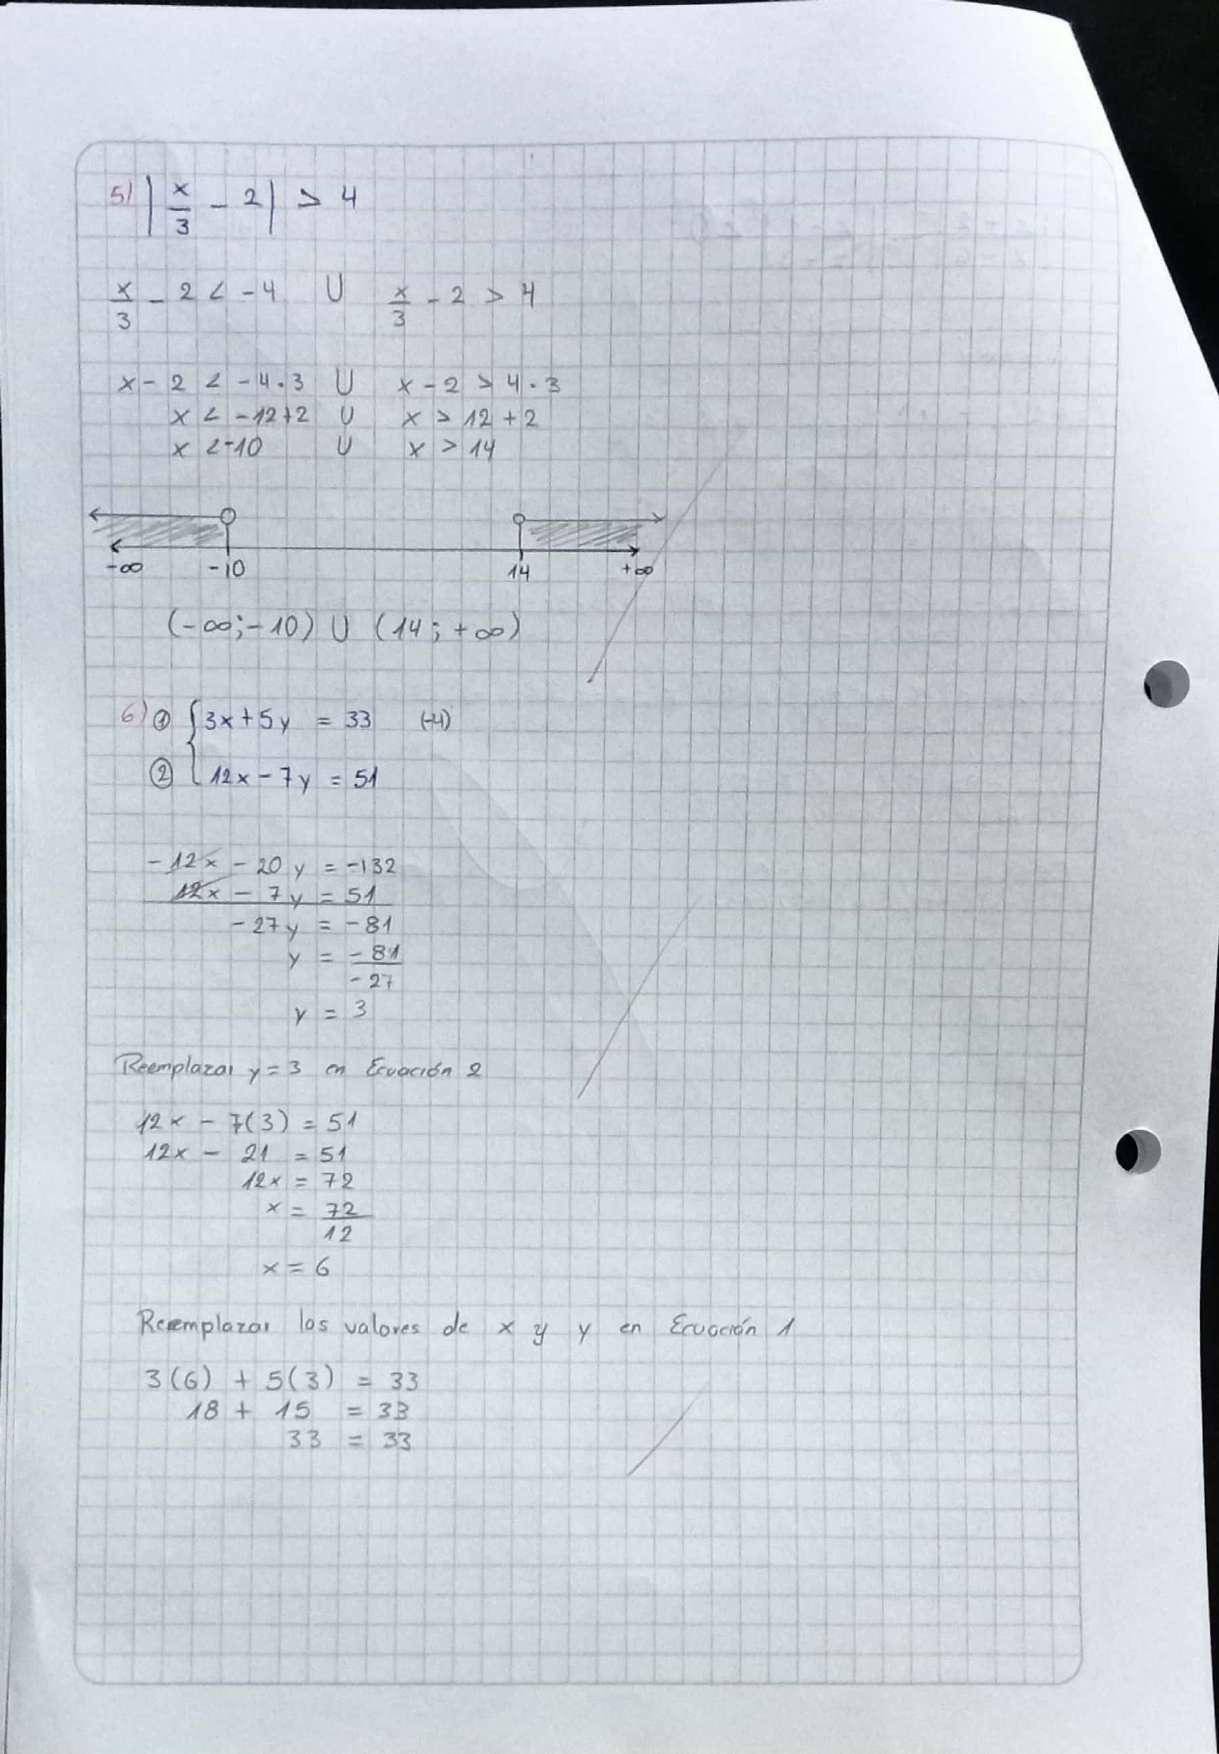 5) |x/3 - 2| > 4
x/3 - 2 < -4 U x/3 - 2 > 4
x - 2 < -4·3 U x - 2 > 4·3
x < -12+2 U x > 12+2
x <-10 U x > 14
-∞ -10 14 +∞
(-∞;-10) U (14; +∞)
6) ① { 3x+5y = 33 (-4)
② 12x - 7y = 51
-12x - 20y = -132
12x - 7y = 51
-27y = -81
y = -81/-27
y = 3
Reemplazar y = 3 en Ecuación 2
12x - 7(3) = 51
12x - 21 = 51
12x = 72
x = 72/12
x = 6
Reemplazar los valores de x y y en Ecuación 1
3(6) + 5(3) = 33
18 + 15 = 33
33 = 33